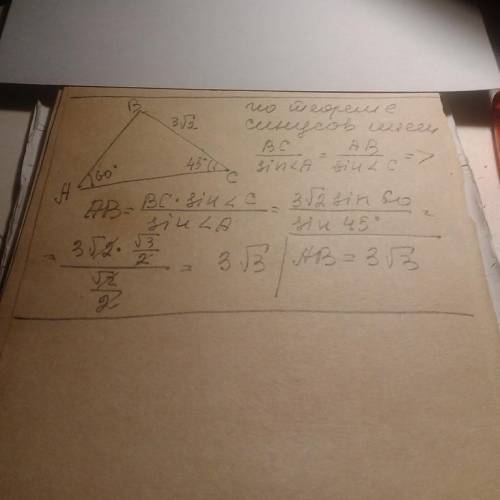 B
3√2
60°
45°
A
C
по теореме
синусов имеем
BC/sin∠A = AB/sin∠C =>
AB = BC·sin∠C/sin∠A = 3√2 sin 60/sin 45° =
= 3√2·√3/2/√2/2 = 3√3 | AB = 3√3